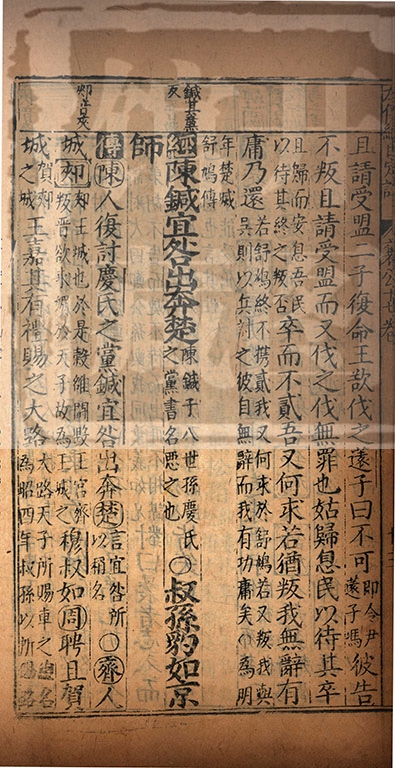 且請受盟二子復命王欲伐之薳子曰不可即令尹薳子馮彼告
不叛且請受盟而又伐之伐無罪也姑歸息民以待其卒
且歸而安息吾民以待其終之叛否卒而不貳吾又何求若猶叛我無辭有
庸乃還若舒鳩終不携貳我又何求於舒鳩若又叛我與吳則以兵討之彼自無辭而我有功庸矣○為明
年楚滅舒鳩傳
鍼其廉反
經陳鍼宜咎出奔楚陳鍼子八世孫慶氏之黨書名惡之也○叔孫豹如京
師
傳陳人復討慶氏之黨鍼宜咎出奔楚言宜咎所以稱名○齊人
城郟郟王城也於是穀雒鬭毀王宮齊叛晉欲求媚於天子故為王城之穆叔如周聘且賀
城賀郟之城王嘉其有禮賜之大路大路天子所賜車之總名為昭四年叔孫以所賜路